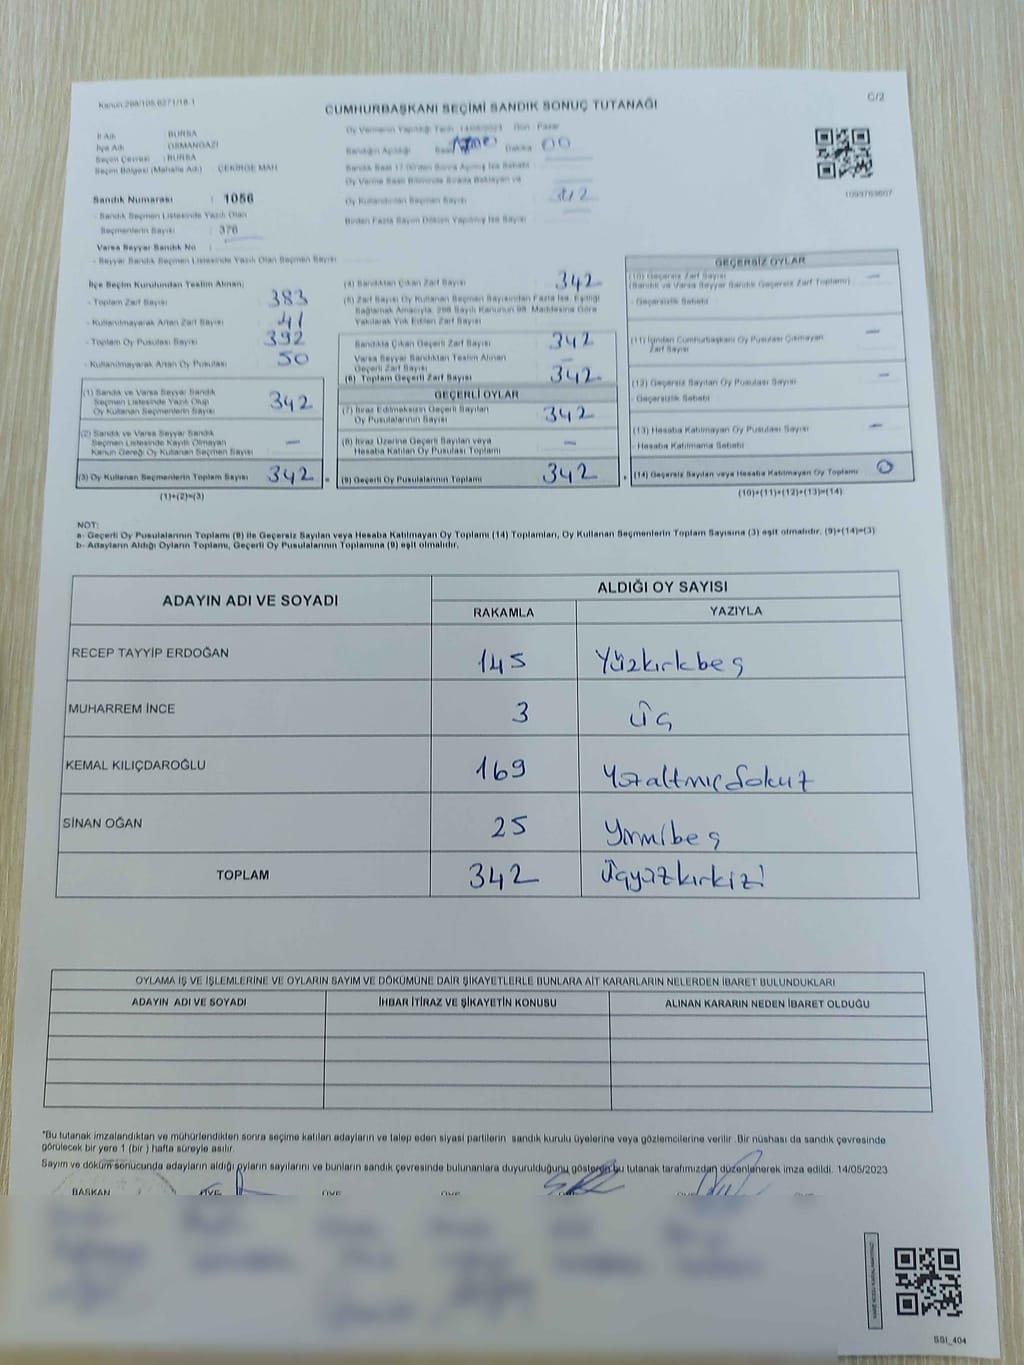 Kanun:298/105,6271/18-1
C/2
CUMHURBAŞKANI SEÇİMİ SANDIK SONUÇ TUTANAĞI
İl Adı : BURSA
İlçe Adı : OSMANGAZİ
Seçim Çevresi : BURSA
Seçim Bölgesi (Mahalle Adı) ÇEKİRGE MAH
Sandık Numarası : 1056
- Sandık Seçmen Listesinde Yazılı Olan
Seçmenlerin Sayısı : 376
Varsa Seyyar Sandık No :
- Seyyar Sandık Seçmen Listesinde Yazılı Olan Seçmen Sayısı
Oy Vermenin Yapıldığı Tarih :14/05/2023 Gün : Pazar
Sandığın Açıldığı Saat Dakika 00
Sandık Saat 17:00'den Sonra Açılmış İse Sebebi
Oy Verme Saati Bitiminde Sırada Bekleyen ve
Oy Kullandırılan Seçmen Sayısı 312
Birden Fazla Sayım Döküm Yapılmış İse Sayısı
1093763607
İlçe Seçim Kurulundan Teslim Alınan;
- Toplam Zarf Sayısı 383
- Kullanılmayarak Artan Zarf Sayısı 41
- Toplam Oy Pusulası Sayısı 392
- Kullanılmayarak Artan Oy Pusulası 50
(1) Sandık ve Varsa Seyyar Sandık
Seçmen Listesinde Yazılı Olup
Oy Kullanan Seçmenlerin Sayısı 342
(2) Sandık ve Varsa Seyyar Sandık
Seçmen Listesinde Kayıtlı Olmayan
Kanun Gereği Oy Kullanan Seçmen Sayısı —
(3) Oy Kullanan Seçmenlerin Toplam Sayısı 342
(1)+(2)=(3)
(4) Sandıktan Çıkan Zarf Sayısı 342
(5) Zarf Sayısı Oy Kullanan Seçmen Sayısından Fazla İse, Eşitliği
Sağlamak Amacıyla, 298 Sayılı Kanunun 98. Maddesine Göre
Yakılarak Yok Edilen Zarf Sayısı
Sandıkta Çıkan Geçerli Zarf Sayısı 342
Varsa Seyyar Sandıktan Teslim Alınan
Geçerli Zarf Sayısı —
(6) Toplam Geçerli Zarf Sayısı 342
GEÇERLİ OYLAR
(7) İtiraz Edilmeksizin Geçerli Sayılan
Oy Pusulalarının Sayısı 342
(8) İtiraz Üzerine Geçerli Sayılan veya
Hesaba Katılan Oy Pusulası Toplamı —
(9) Geçerli Oy Pusulalarının Toplamı 342
GEÇERSİZ OYLAR
(10) Geçersiz Zarf Sayısı —
(Sandık ve Varsa Seyyar Sandık Geçersiz Zarf Toplamı)
- Geçersizlik Sebebi
(11) İçinden Cumhurbaşkanı Oy Pusulası Çıkmayan
Zarf Sayısı —
(12) Geçersiz Sayılan Oy Pusulası Sayısı —
- Geçersizlik Sebebi
(13) Hesaba Katılmayan Oy Pusulası Sayısı —
- Hesaba Katılmama Sebebi
(14) Geçersiz Sayılan veya Hesaba Katılmayan Oy Toplamı 0
(10)+(11)+(12)+(13)=(14)
NOT:
a- Geçerli Oy Pusulalarının Toplamı (9) ile Geçersiz Sayılan veya Hesaba Katılmayan Oy Toplamı (14) Toplamları, Oy Kullanan Seçmenlerin Toplam Sayısına (3) eşit olmalıdır. (9)+(14)=(3)
b- Adayların Aldığı Oyların Toplamı, Geçerli Oy Pusulalarının Toplamına (9) eşit olmalıdır.
ADAYIN ADI VE SOYADI
ALDIĞI OY SAYISI
RAKAMLA YAZIYLA
RECEP TAYYİP ERDOĞAN 145 Yüzkırkbeş
MUHARREM İNCE 3 üç
KEMAL KILIÇDAROĞLU 169 Yüzaltmışdokuz
SİNAN OĞAN 25 Yirmibeş
TOPLAM 342 Üçyüzkırkizi
OYLAMA İŞ VE İŞLEMLERİNE VE OYLARIN SAYIM VE DÖKÜMÜNE DAİR ŞİKAYETLERLE BUNLARA AİT KARARLARIN NELERDEN İBARET BULUNDUKLARI
ADAYIN ADI VE SOYADI İHBAR İTİRAZ VE ŞİKAYETİN KONUSU ALINAN KARARIN NEDEN İBARET OLDUĞU
*Bu tutanak imzalandıktan ve mühürlendikten sonra seçime katılan adayların ve talep eden siyasi partilerin sandık kurulu üyelerine veya gözlemcilerine verilir .Bir nüshası da sandık çevresinde
görülecek bir yere 1 (bir ) hafta süreyle asılır.
Sayım ve döküm sonucunda adayların aldığı oyların sayılarını ve bunların sandık çevresinde bulunanlara duyurulduğunu gösteren bu tutanak tarafımızdan düzenlenerek imza edildi. 14/05/2023
BAŞKAN ÜYE ÜYE ÜYE
SSI_404